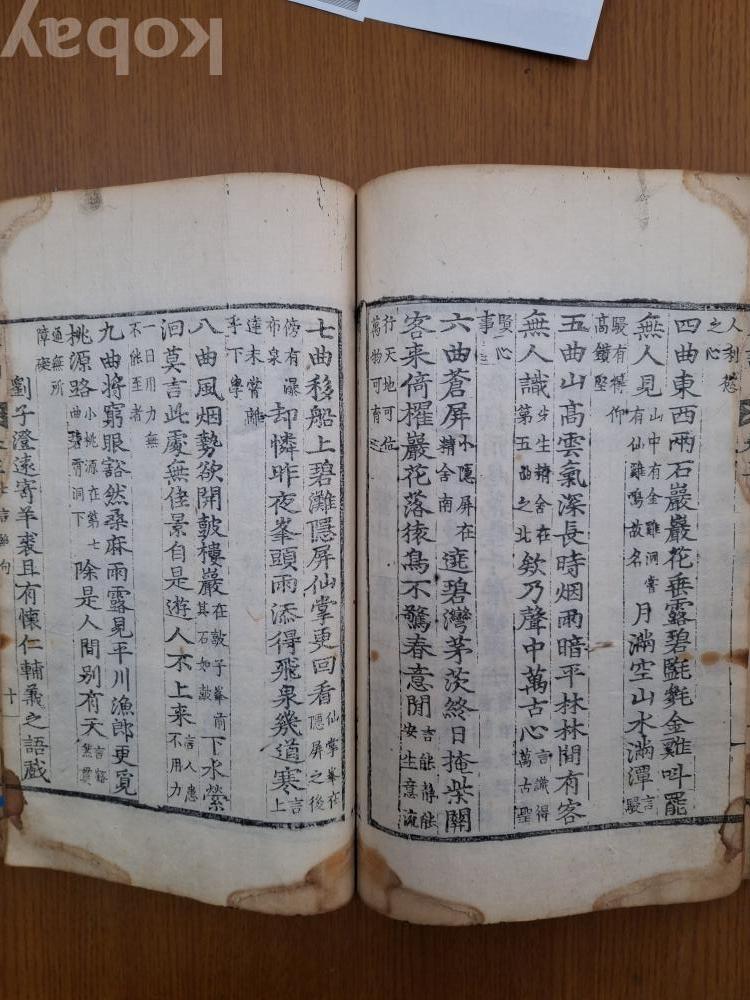 人利慾
之心
四曲東西兩石巖巖花垂露碧㲯毿金雞叫罷
無人見山中有金雞洞嘗有仙雞鳴故名月滿空山水滿潭言
有得仰高鑽堅
五曲山高雲氣深長時烟雨暗平林林間有客
無人識先生精舍在第五曲之北欸乃聲中萬古心言識得萬古聖
賢心事之
六曲蒼屏小隱屏在精舍南遶碧灣茅茨終日掩柴關
客来倚櫂巖花落猿鳥不驚春意閒言能靜能安生意流
行天地可位萬物可育之
七曲移船上碧灘隱屏仙掌更回看仙掌峯在隱屏之後
傍有瀑布泉却憐昨夜峯頭雨添得飛泉幾道寒言上
達未嘗離乎下學
八曲風烟勢欲開皷樓巖在敦子峯前其石如皷下水縈
洄莫言此處無佳景自是遊人不上来言人患不用力
一日用力無不能至者
九曲將窮眼豁然桑麻雨露見平川漁郎更覓
桃源路小桃源在第七曲碧霄洞下除是人間別有天言豁然貫
通無所障礙
劉子澄遠寄羊裘且有懷仁輔義之語戲
七言絶句
十一
kobay